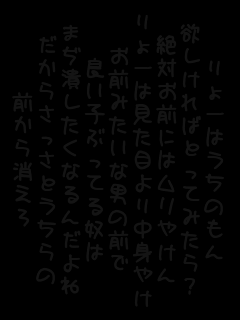 りょーはうちのもん
欲しければとってみたら?
絶対お前にはムリやけん
りょーは見た目より中身やけ
お前みたいな男の前で
良い子ぶってる奴は
まぢ潰したくなるんだよね
だからさっさとうちらの
前から消えろ